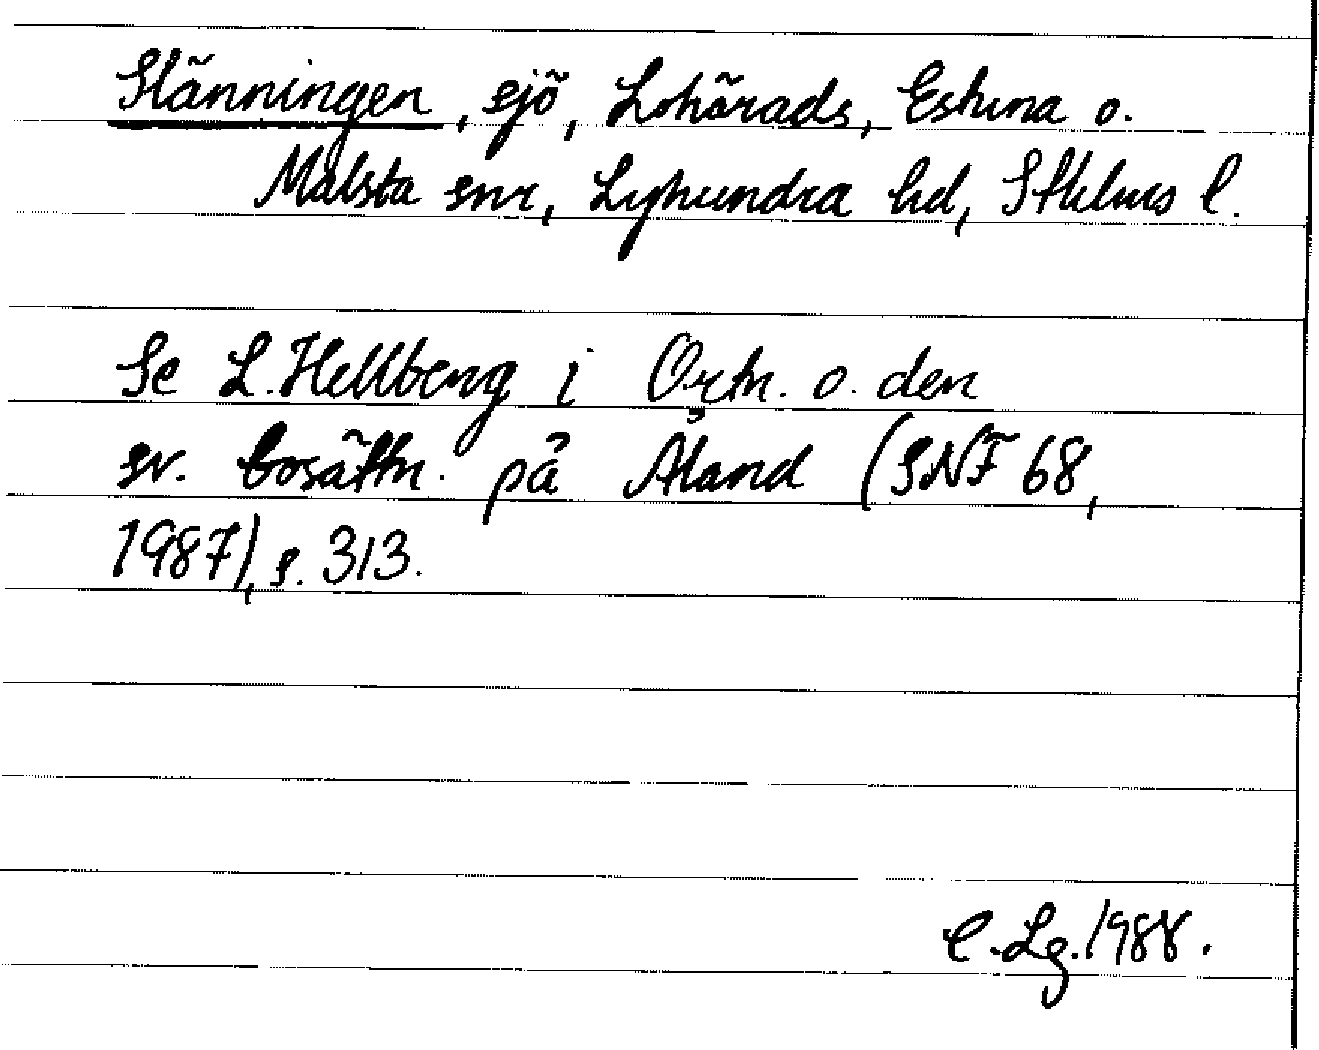 Slänningen, sjö, Lohärads, Estuna o.
Malsta snr, Lyhundra hd, Sthlms l.
Se L. Hellberg i Ortn. o. den
sv. bosättn. på Åland (SNF 68,
1987), s. 313.
C. Lg. 1988.